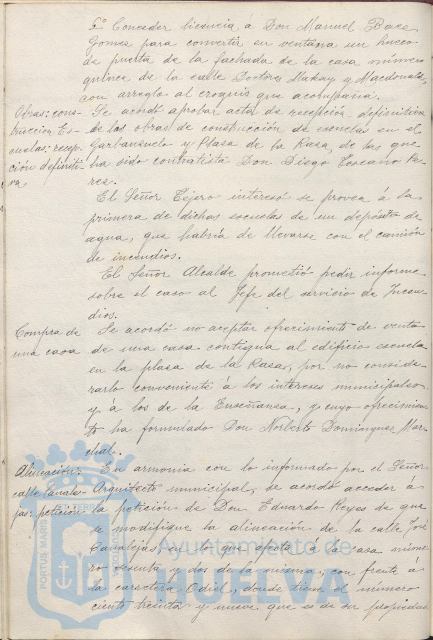 2º Conceder licencia á Don Manuel Baez
Gomez para convertir en ventana un hueco
de puerta de la fachada de la casa número
quince de la calle Doctores Mackay y Macdonald,
con arreglo al croquis que acompaña.
Obras: cons-
trucción Es-
cuelas: recep-
ción definiti-
va.
Se acordó aprobar acta de recepción definitiva
de las obras de construcción de escuelas en el
Garbanzuelo y Plaza de la Rasa, de las que
ha sido contratista Don Diego Toscano Pe-
rez.
El Señor Tejero interesó se provea á la
primera de dichas escuelas de un depósito de
agua, que habría de llevarse con el camión
de incendios.
El Señor Alcalde prometió pedir informe
sobre el caso al Jefe del servicio de Incen-
dios.
Compra de
una casa
Se acordó no aceptar ofrecimiento de venta
de una casa contigua al edificio escuela
en la plaza de la Rasa, por no conside-
rarlo conveniente á los intereses municipales
y á los de la Enseñanza, y cuyo ofrecimien-
to ha formulado Don Norberto Dominguez Mar-
cial.
Alineación:
calle Canale-
jas: petición
En armonía con lo informado por el Señor
Arquitecto municipal, se acordó acceder á
la petición de Don Eduardo Reyes de que
se modifique la alineación de la calle José
Canalejas en lo que afecta á la casa núme-
ro sesenta y dos de la misma, con frente á
la carretera Odiel, donde tiene el número
ciento treinta y nueve, que es de su propiedad
PORTUS MARIS
Ayuntamiento de
HUELVA